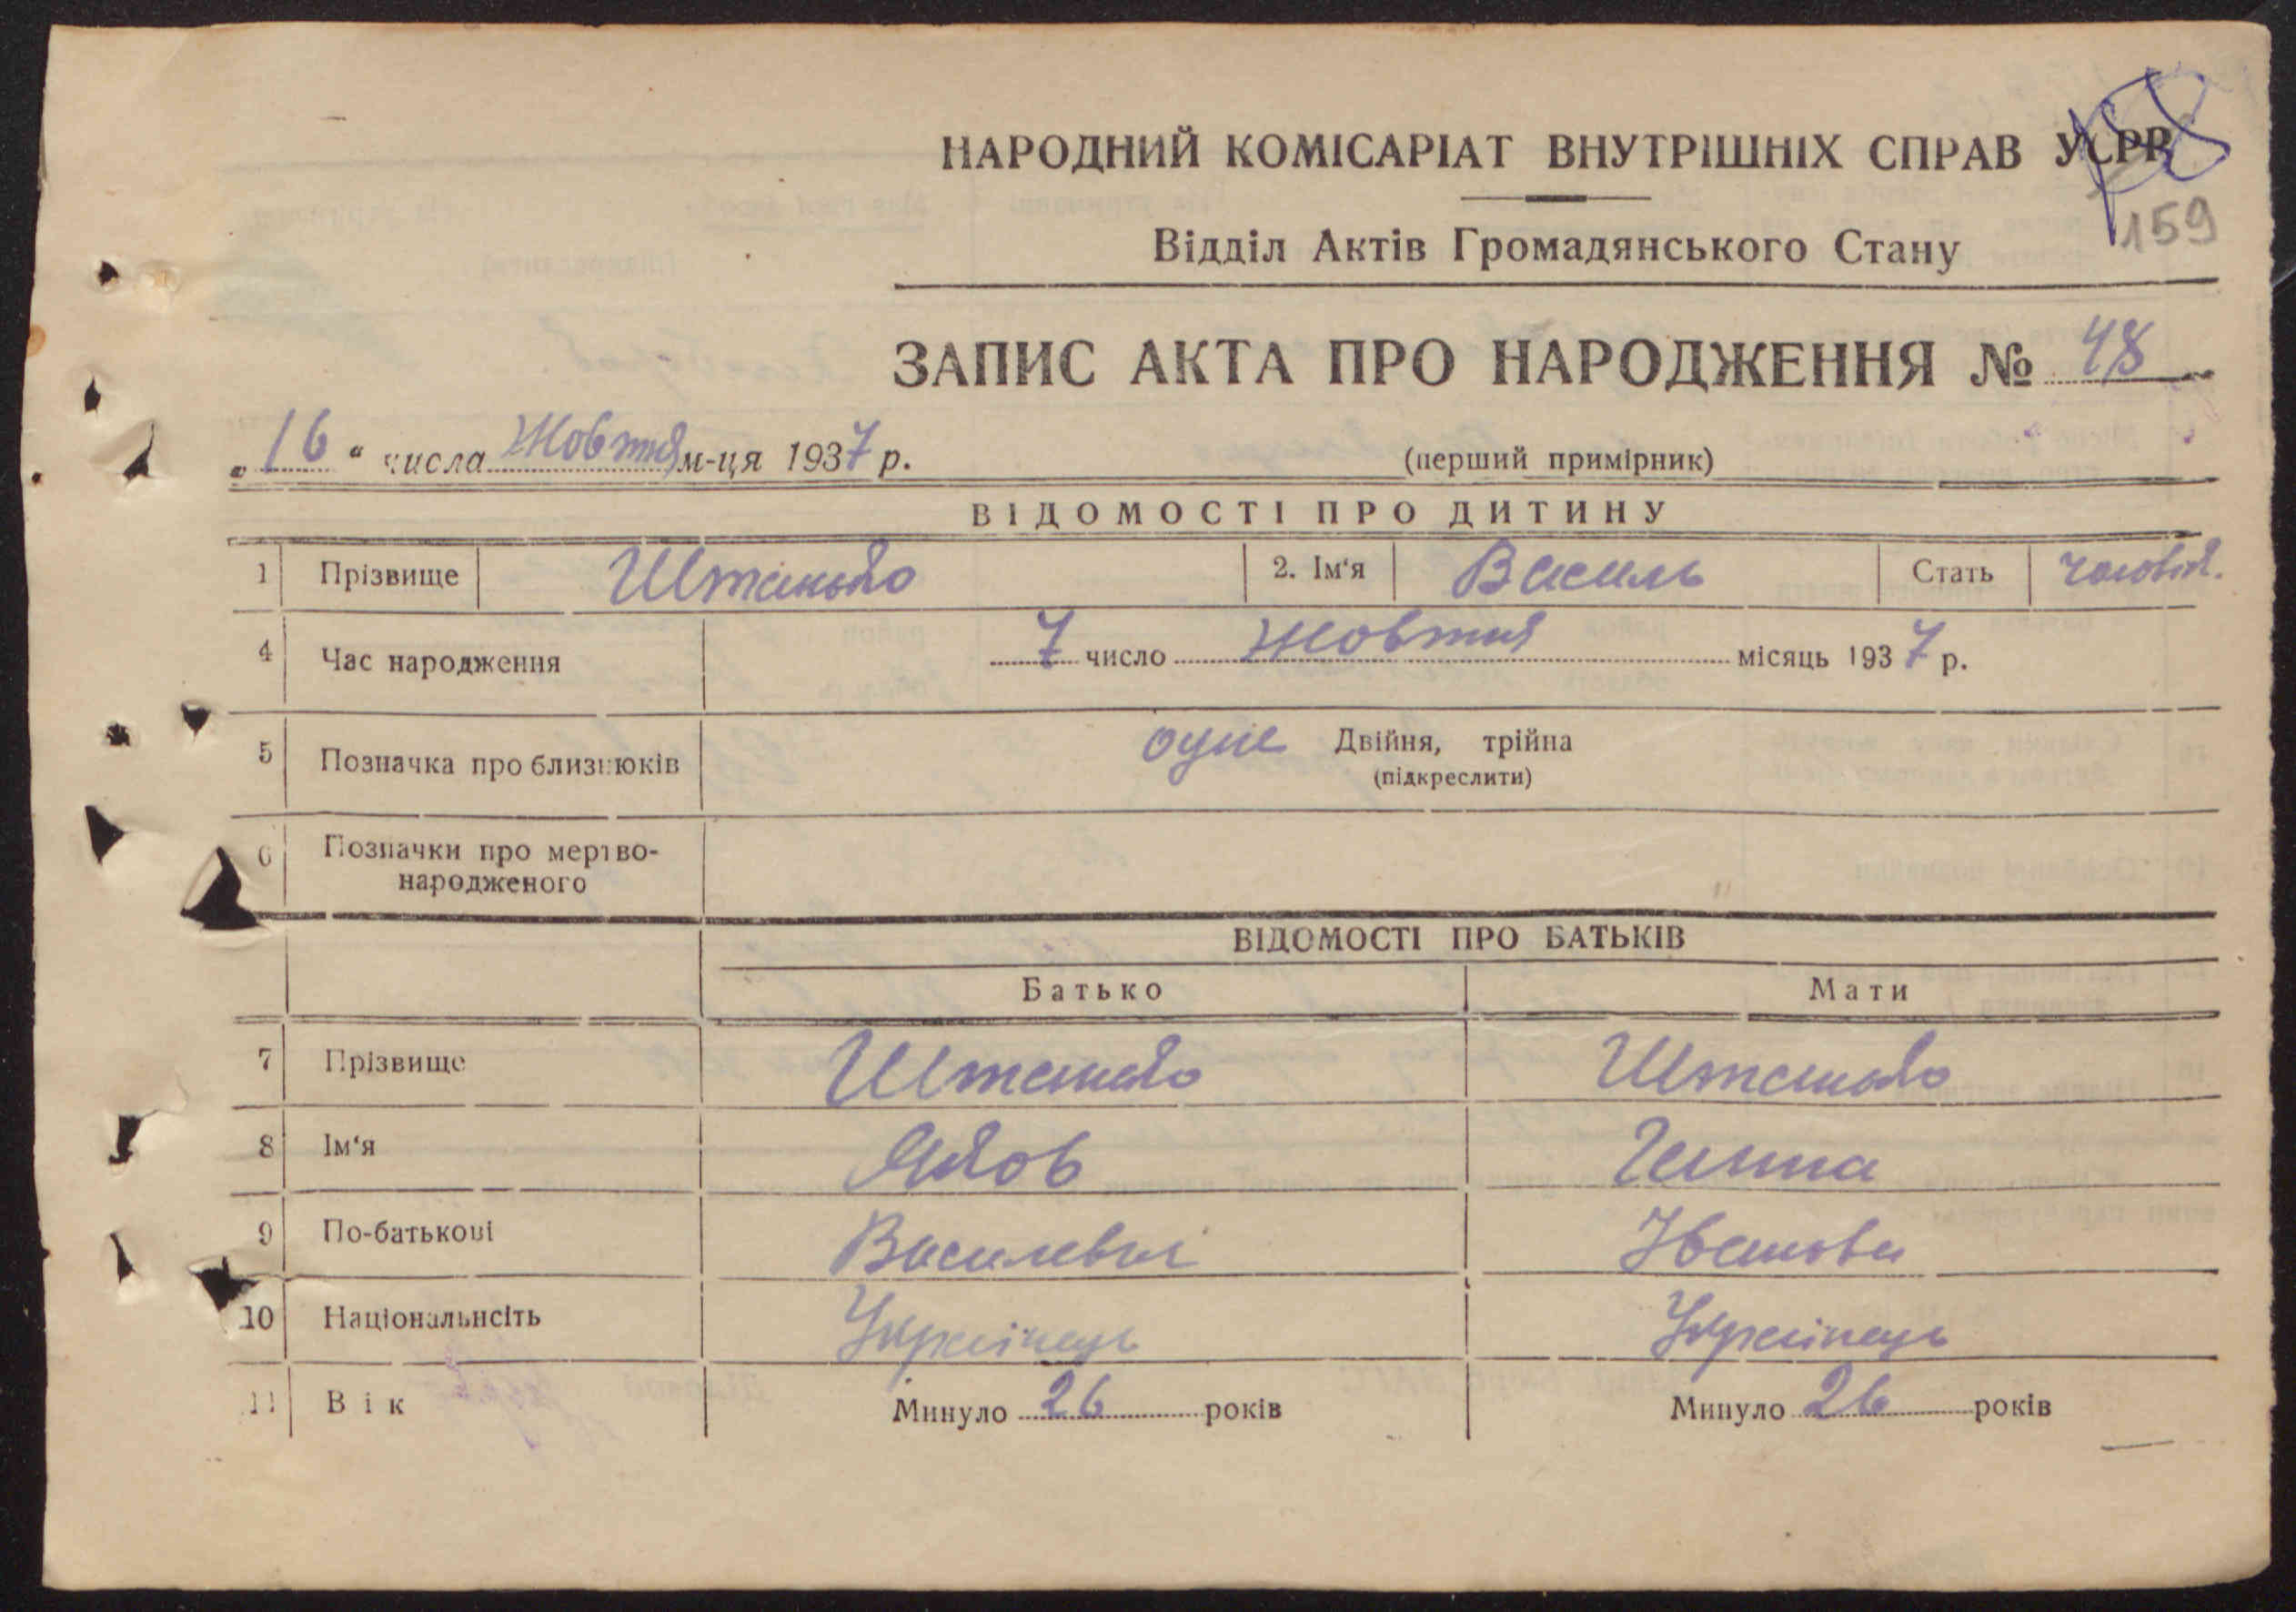 НАРОДНИЙ КОМІСАРІАТ ВНУТРІШНІХ СПРАВ УСРР
159
Відділ Актів Громадянського Стану
ЗАПИС АКТА ПРО НАРОДЖЕННЯ № 48
„16“ числа Жовтня м-ця 1937 р.
(перший примірник)
ВІДОМОСТІ ПРО ДИТИНУ
1 Прізвище Штанько 2. Ім‘я Василь Стать чоловіч.
4 Час народження 7 число Жовтня місяць 1937 р.
5 Позначка про близнюків одне Двійня, трійна
(підкреслити)
6 Позначки про мертво-
народженого
ВІДОМОСТІ ПРО БАТЬКІВ
Батько Мати
7 Прізвище Штанько Штанько
8 Ім‘я Яков Ганна
9 По-батькові Василевич Івановна
10 Національнсіть Українець Українець
11 Вік Минуло 26 років Минуло 26 років